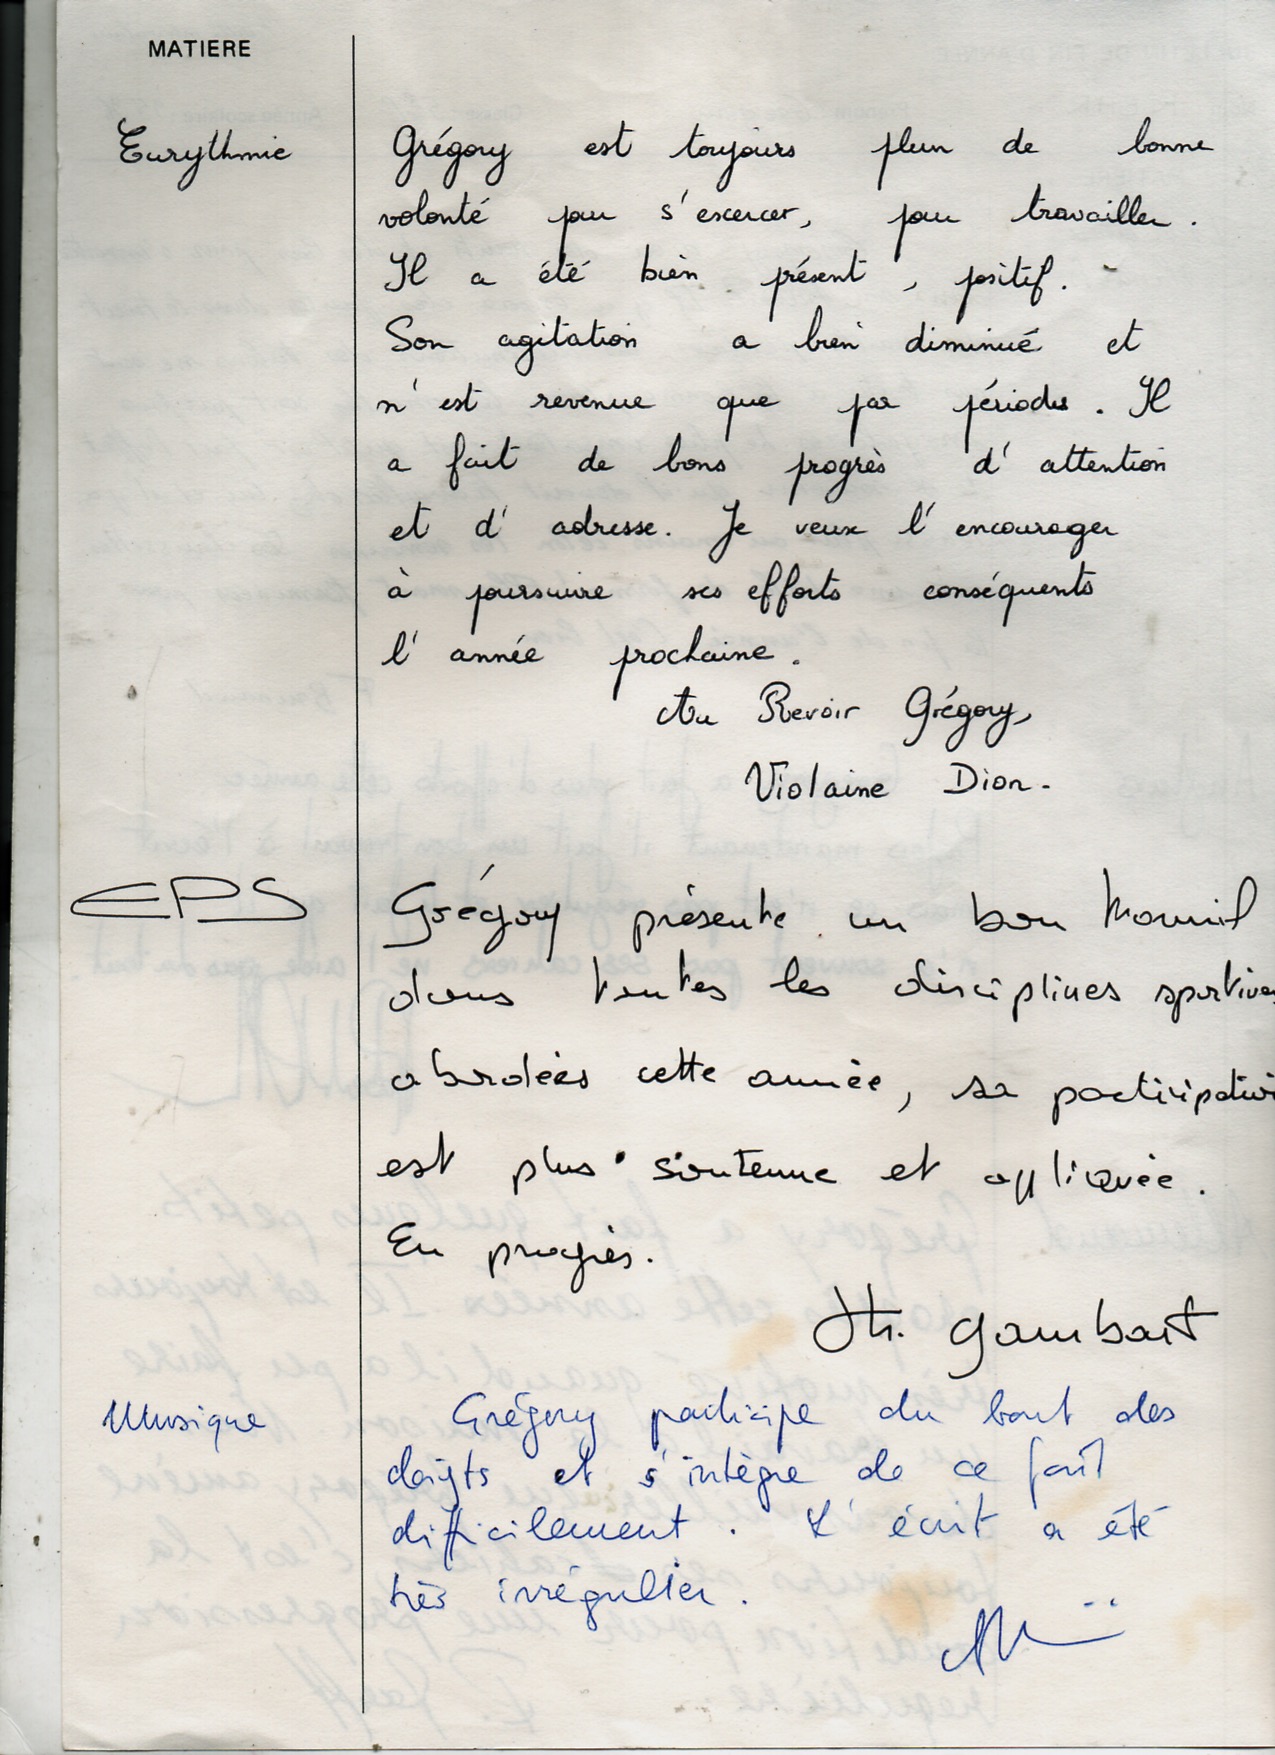 MATIERE
Eurythmie
Grégory est toujours plein de bonne
volonté pour s'excercer, pour travailler.
Il a été bien présent, positif.
Son agitation a bien diminué et
n'est revenue que par périodes. Il
a fait de bons progrès d'attention
et d'adresse. Je veux l'encourager
à poursuivre ses efforts conséquents
l'année prochaine.
Au Revoir Grégory,
Violaine Dion.
EPS
Grégory présente un bon travail
dans toutes les disciplines sportives
abordées cette année, sa participation
est plus soutenue et appliquée.
En progrès.
Th. Gambart
Musique
Grégory participe du bout des
doigts et s'intègre de ce fait
difficilement. L'écrit a été
très irrégulier.